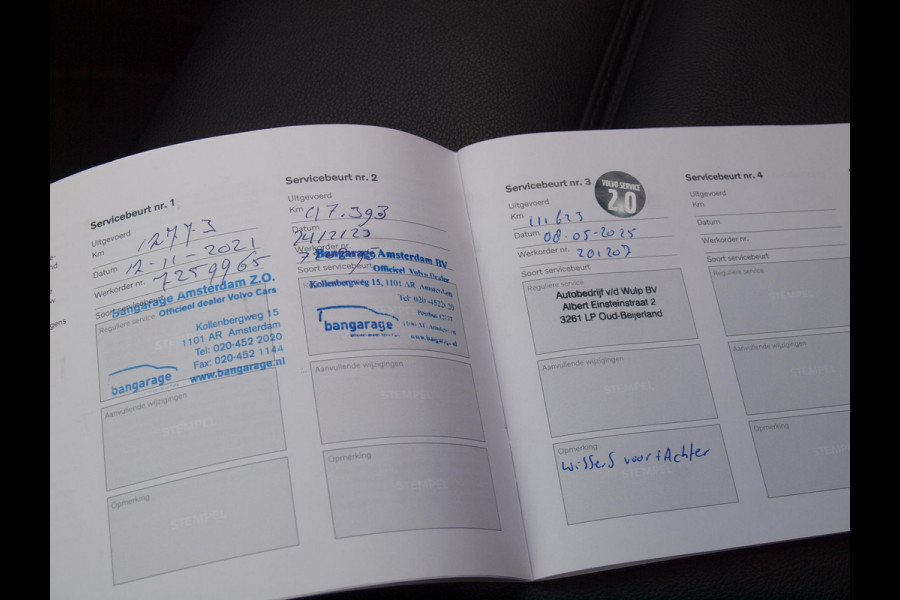 Servicebeurt nr. 1
Uitgevoerd
Km 12773
Datum 12-11-2021
Werkorder nr. 7259965
Soort servicebeurt
Bangarage Amsterdam Z.O.
Officieel dealer Volvo Cars
Reguliere service
Kollenbergweg 15
1101 AR Amsterdam
Tel: 020-452 2020
Fax: 020-452 1144
bangarage
www.bangarage.nl
Aanvullende wijzigingen
STEMPEL
Opmerking
STEMPEL
Servicebeurt nr. 2
Uitgevoerd
Km 47.393
Datum
24/2/23
Werkorder nr.
Bangarage Amsterdam BV
Soort servicebeurt
Officieel Volvo Dealer
Kollenbergweg 15, 1101 AR Amsterdam
bangarage
Aanvullende wijzigingen
STEMPEL
Opmerking
STEMPEL
Servicebeurt nr. 3
VOLVO SERVICE
2.0
Uitgevoerd
Km 111623
Datum 08-05-2025
Werkorder nr. 201207
Soort servicebeurt
Reguliere service
Autobedrijf v/d Wulp BV
Albert Einsteinstraat 2
3261 LP Oud-Beijerland
Aanvullende wijzigingen
STEMPEL
Opmerking
wissers voor+Achter
STEMPEL
Servicebeurt nr. 4
Uitgevoerd
Km
Datum
Werkorder nr.
Soort servicebeurt
Reguliere service
Aanvullende wijzigingen
Opmerking